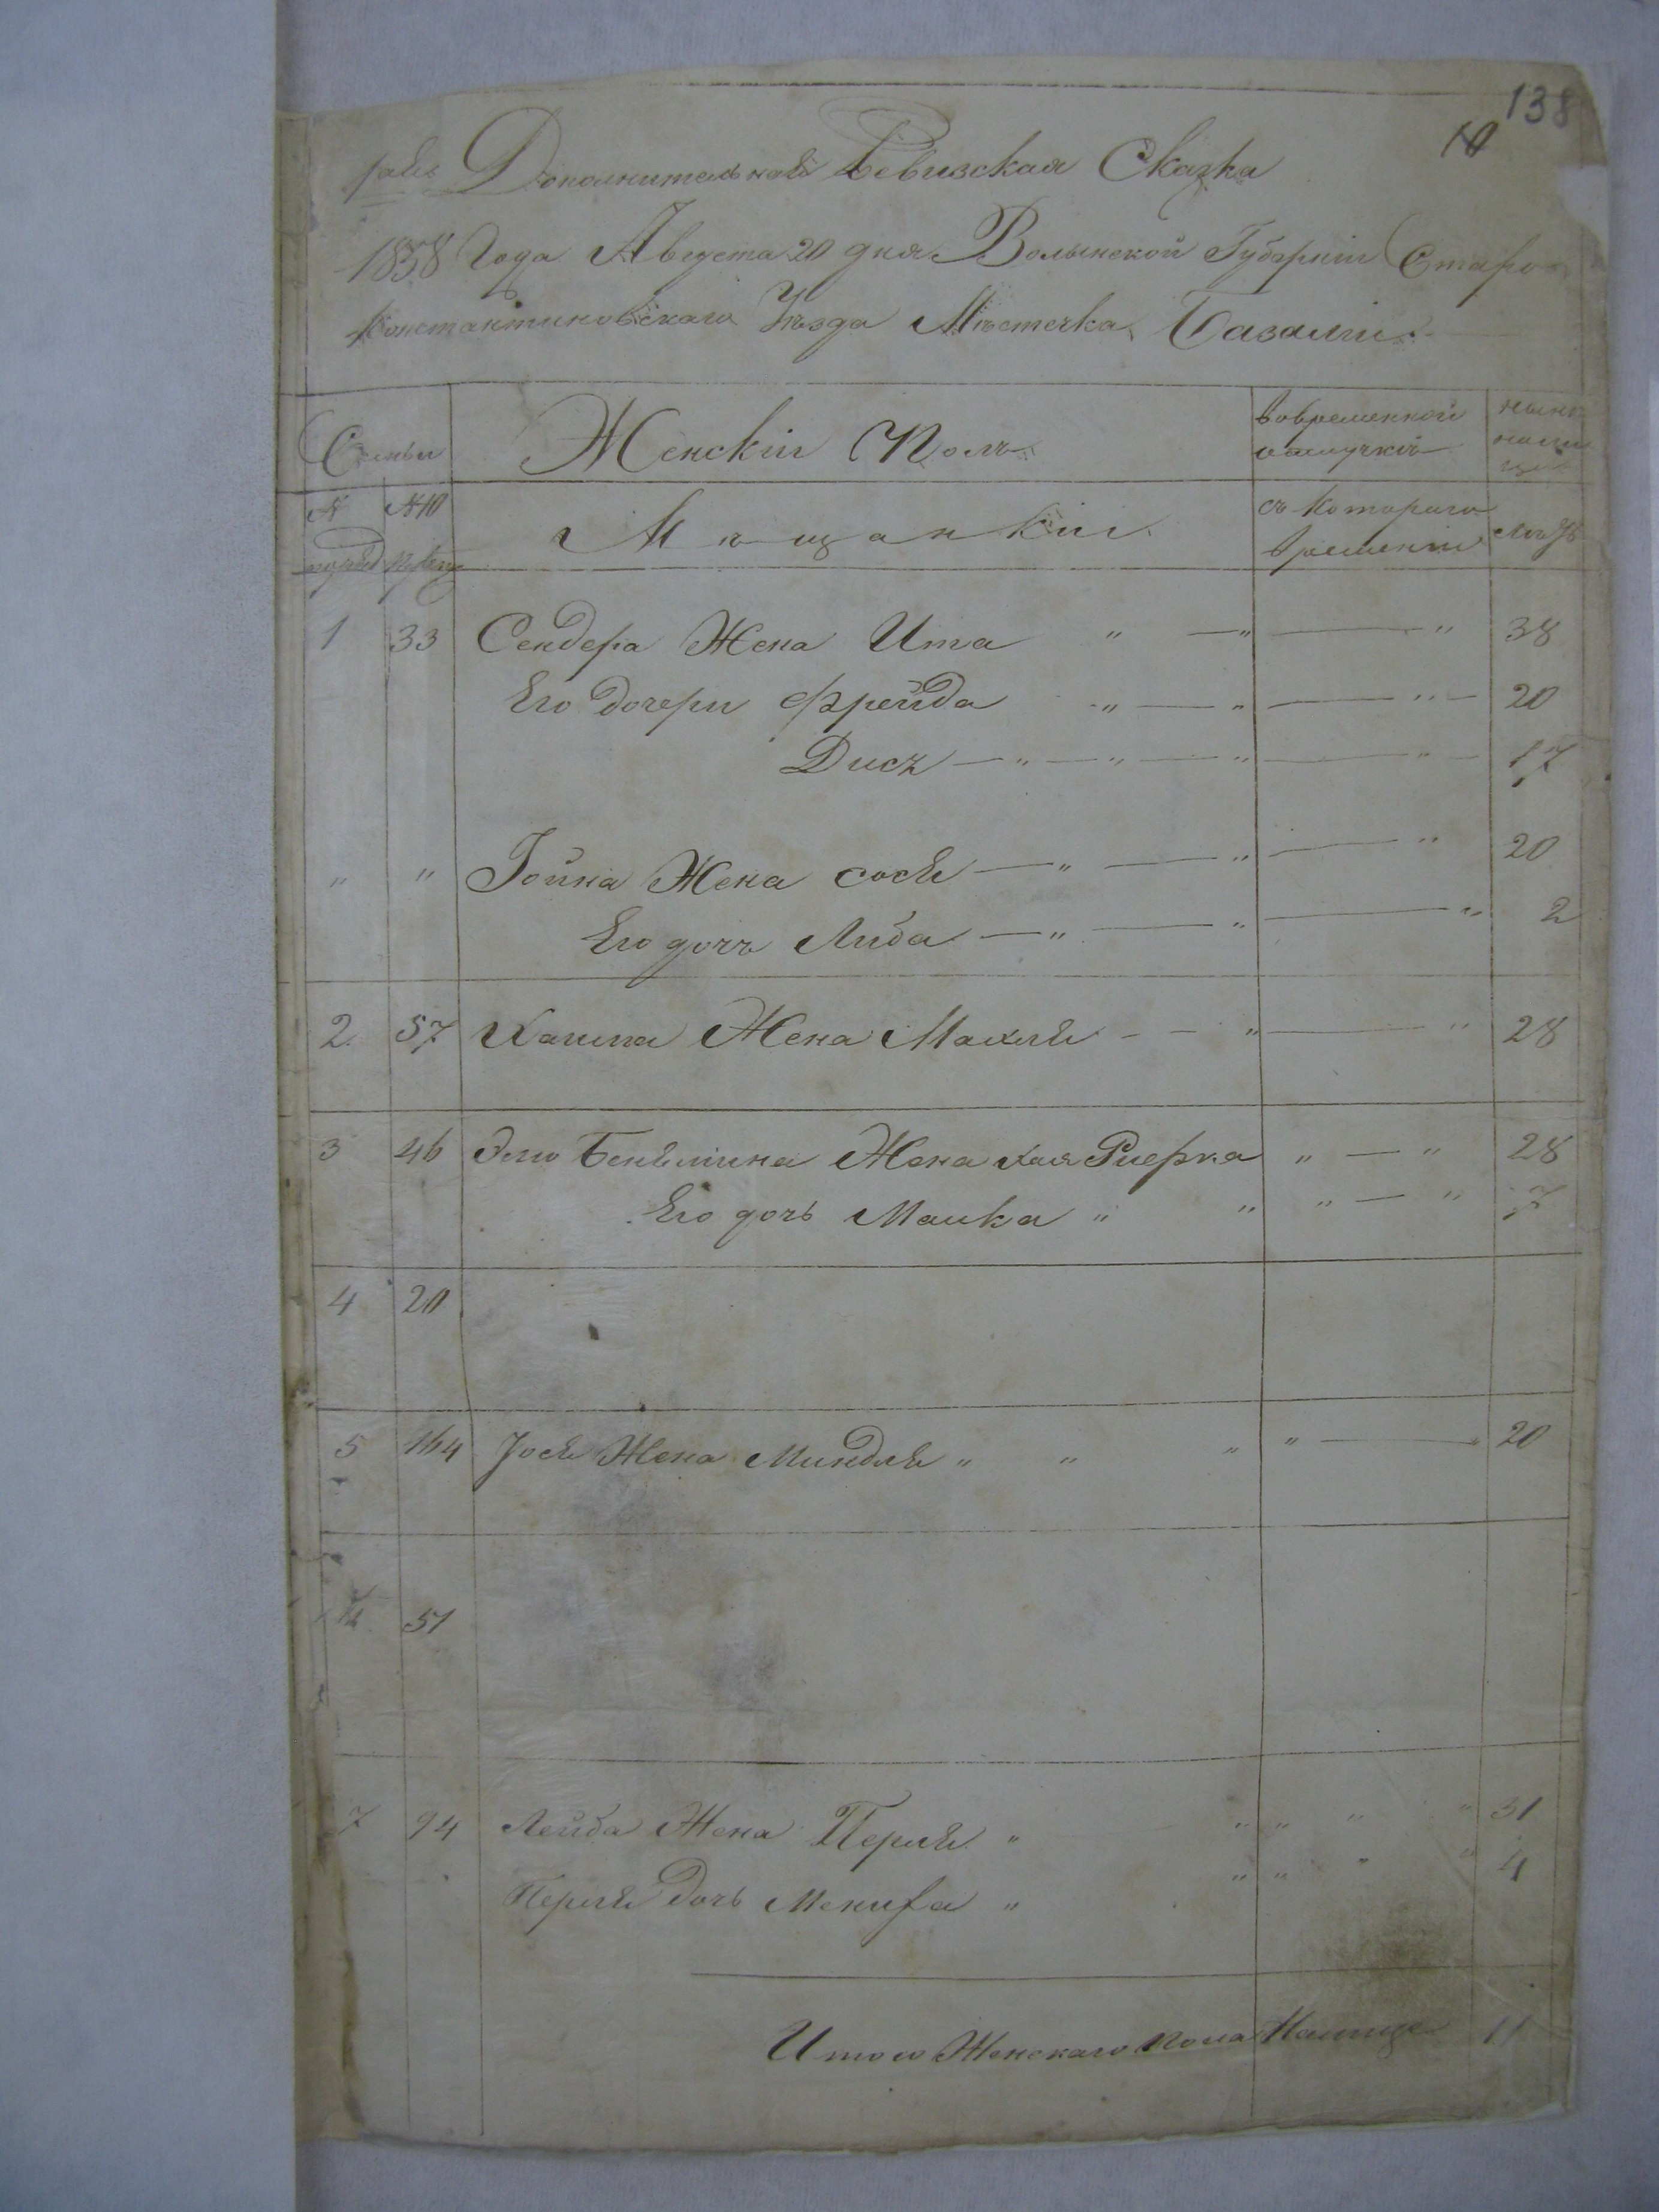 138
10
Дополнительная Ревизская Сказка
1858 Года Августа 20 дня Волынской Губерніи Старо-
константиновскаго Уѣзда Мѣстечка Базаліи.
Семьи Женскій Полъ вовременной отлучкѣ нынѣ
№ №10 Мѣщанкіи съ Котораго времени Лѣтъ
1 33 Сендера Жена Ита " — " — " 38
Его Дочери Фрейда " — " — " — 20
Дися — " — " — " — " — 17
" " Гойна Жена Сося — " — " — " 20
Его дочъ Либа — " — " — " 2
2 57 Жена Махля - - " — " 28
3 46 Беніямина Жена Хая Ривка " — " 28
Его дочь Малка " " " — " 7
4 20
5 164 Іося Жена Миндля " " " " — " 20
51
7 94 Лейба Жена Перля " " " " " 31
Перля Дочь " " " " " 4
Итого Женскаго пола Налице 11